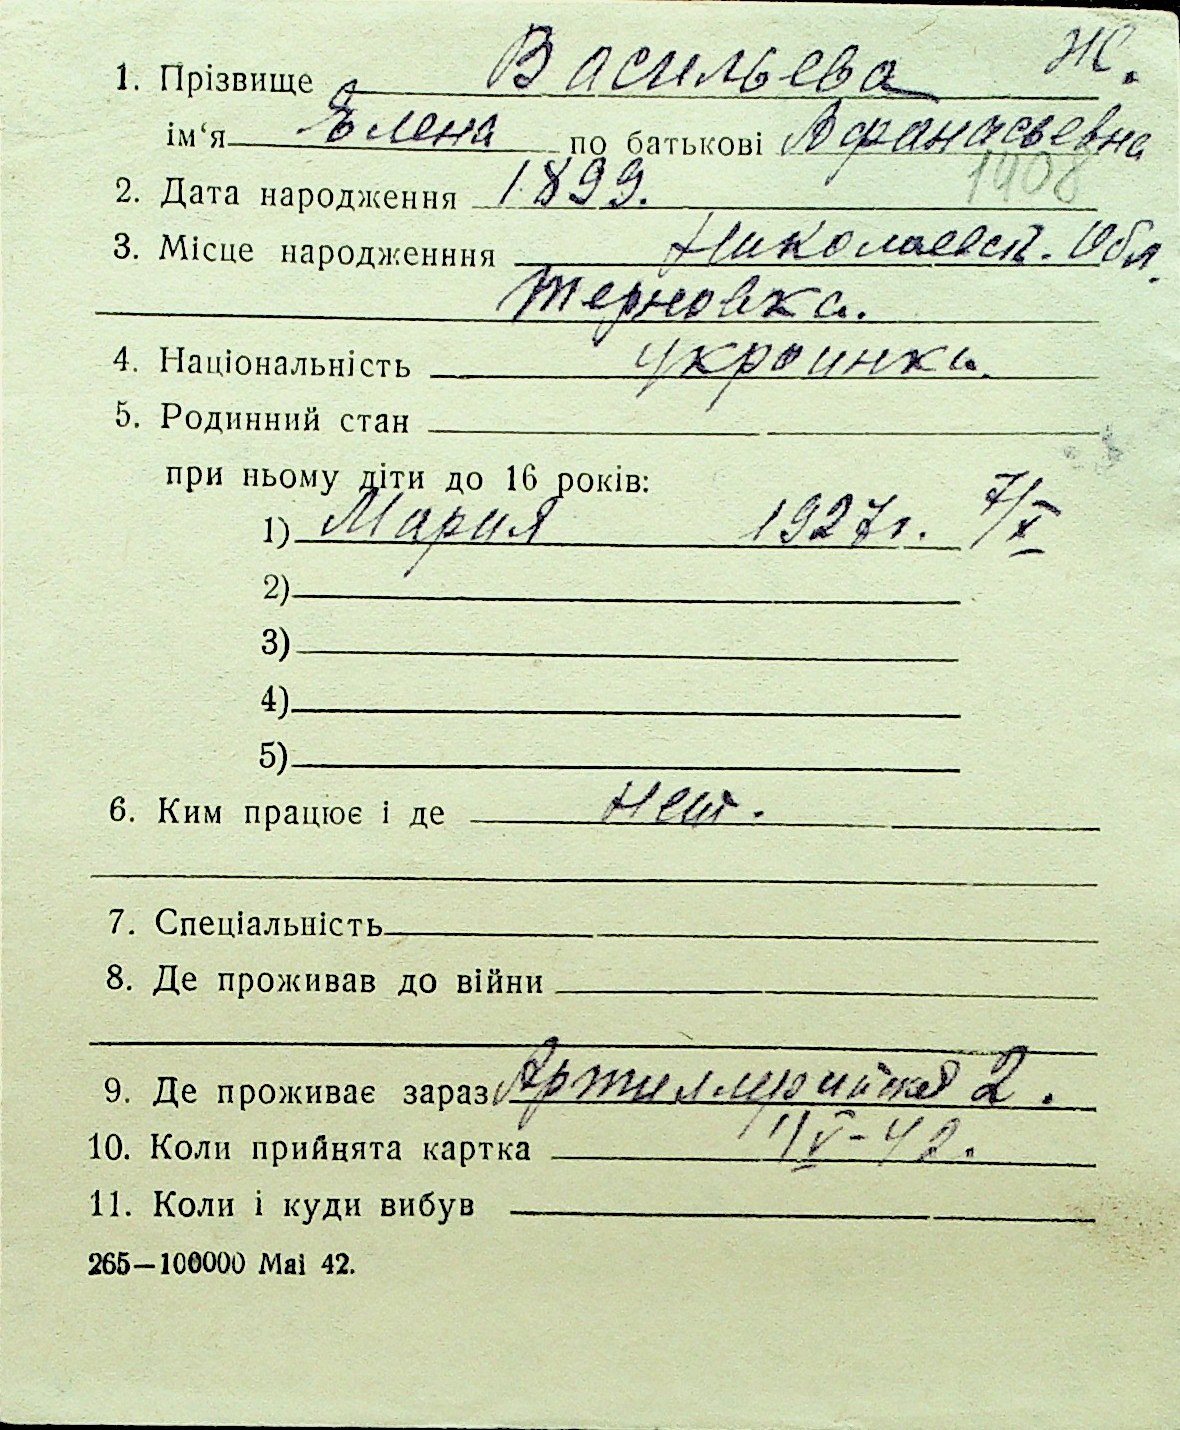 1. Прізвище Васильева Ж.
ім‘я Елена по батькові Афанасьевна
2. Дата народження 1899. 1908
3. Місце народженння Николаевск. Обл.
Терновка.
4. Національність украинка.
5. Родинний стан
при ньому діти до 16 років:
1) Мария 1927 г. 7/X
2)
3)
4)
5)
6. Ким працює і де нет.
7. Спеціальність
8. Де проживав до війни
9. Де проживає зараз Артиллерийская 2.
10. Коли прийнята картка 1/V-42.
11. Коли і куди вибув
265—100000 Маі 42.